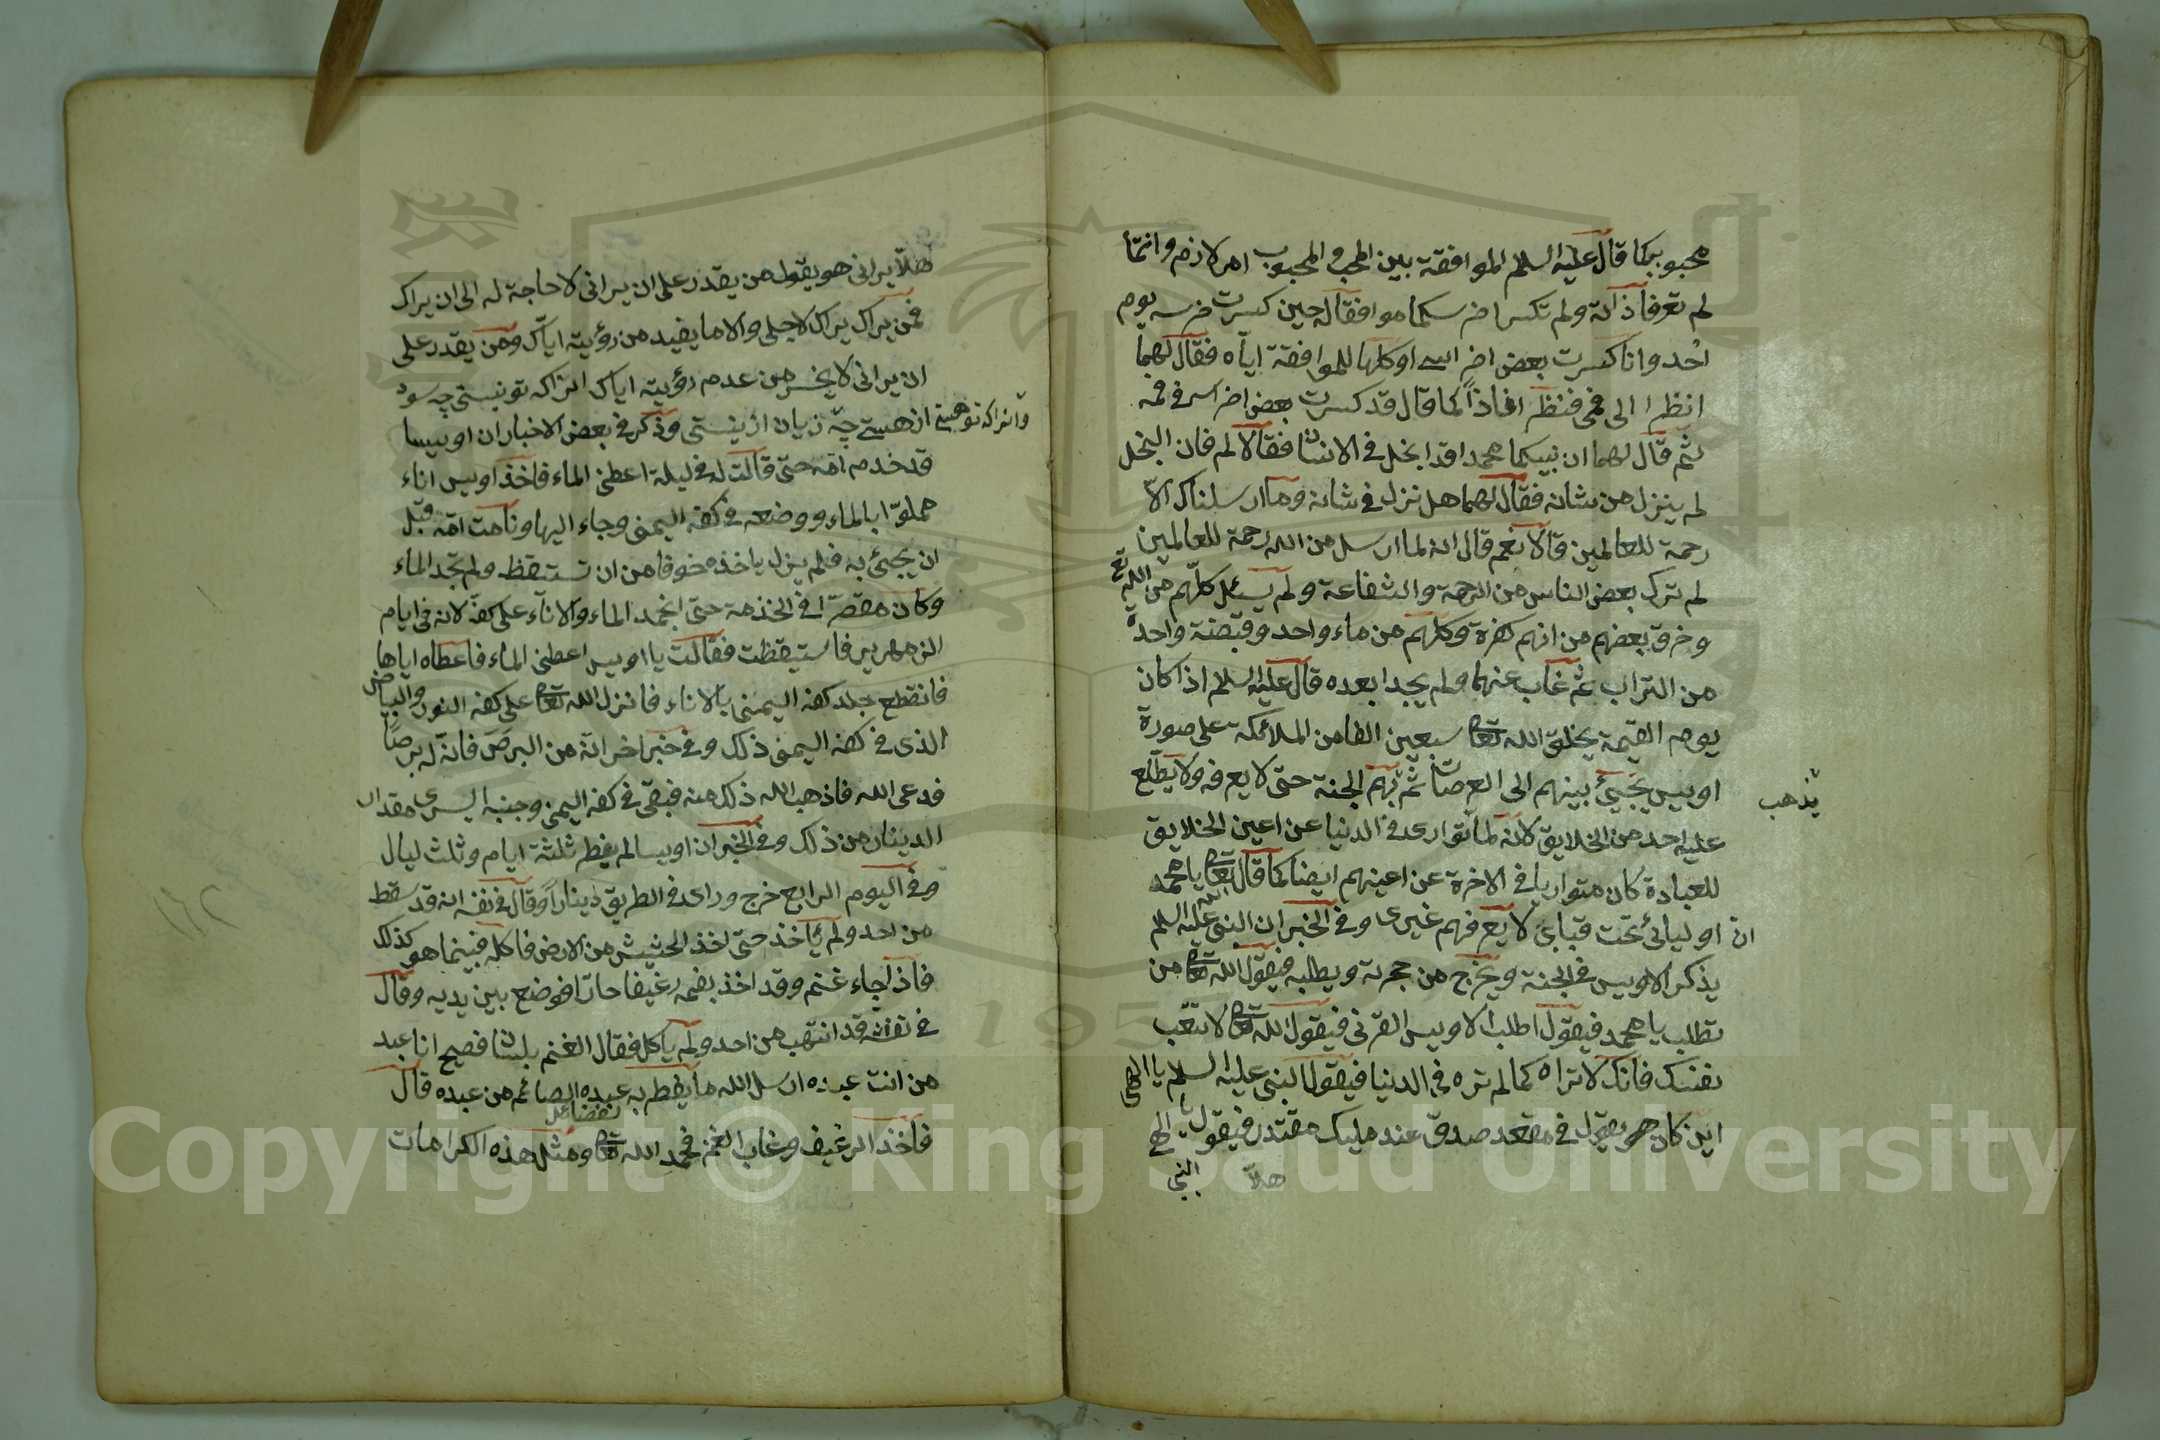 محبوبكما قال عليه السلم الموافقة بين المحب والمحبوب امر لازم وانتما
لم تعرفا ذاته ولم تكسرا ضرسكما موافقا له حين كسرت ضرسه يوم
احد وانا كسرت بعض اضراسي او كلها للموافقة اياه فقال لهما
انظرا الى فمي فنظرا فاذا كما قال قد كسرت بعض اضراسه في فمه
ثم قال لهما ان نبيكما محمدا قد ابخل في الانسان فقالا لم فان البخل
لم ينزل من شانه فقال لهما هل نزل في شانه وما ارسلناك الا
رحمة للعالمين قالا نعم قال انه لما ارسل من الله رحمة للعالمين
لم ترك بعض الناس من الرحمة والشفاعة ولم يسئل كلهم من الله تع
وخرق بعضهم من انهم كفرة وكلهم من ماء واحد وقبضة واحدة
من التراب ثم غاب عنهما ولم يجدا بعده قال عليه السلم اذا كان
يوم القيمة يخلق الله تعا سبعين الفا من الملائكة على صورة
اويس يجيئ بينهم الى العرصات ثم بهم الجنة حتى لا يعرفه ولا يطلع
يذهب
عليه احد من الخلايق لانه لما توارى في الدنيا عن اعين الخلايق
للعبادة كان متواريا في الاخرة عن اعينهم ايضا كما قال الله تعا يا محمد
ان اوليائي تحت قبابي لا يعرفهم غيري وفي الخبر ان النبي عليه السلم
يذكر الاويس في الجنة ويخرج من حجرته ويطلبه فيقول الله تعا من
تطلب يا محمد فيقول اطلب الاويس القرني فيقول الله تعا لا تتعب
نفسك فانك لا تراه كما لم تره في الدنيا فيقول النبي عليه السلم يا الهي
اين كان هو يقول في مقعد صدق عند مليك مقتدر فيقول يا الهي
النبي
هلا
هلا يراني هو يقول من يقدر على ان يراني لا حاجة له الى ان يراك
فمن يراك يراك لاجلي والا ما يفيد من رؤيته اياك ومن يقدر على
ان يراني لا يخسر من عدم رؤيته اياك انراكه تو نيستى چه سود
وانراكه تو هستى از هستى چه زيان از نيستى وذكر في بعض الاخبار ان اويسا
قد خدم امه حتى قالت له في ليلة اعطني الماء فاخذ اويس اناء
مملوا بالماء ووضعه في كفه اليمنى وجاء اليها ونامت امه قبل
ان يجيئ به فلم يزل ياخذه خوفا من ان تستيقظ ولم تجد الماء
وكان مقصرا في الخذمة حتى انجمد الماء والاناء على كفه لانه في ايام
الزمهرير فاستيقظت فقالت يا اويس اعطني الماء فاعطاه اياها
فانقطع جلد كفه اليمنى بالاناء فانزل الله تعا على كفه النور والبياض
الذي في كفه اليمنى ذلك وفي خبر اخر انه من البرص فانه له برصا
فدعى الله فاذهب الله ذلك منه فبقي في كفه اليمنى وجنبه اليسرى مقدار
الدينار من ذلك وفي الخبر ان اويسا لم يفطر ثلثة ايام وثلث ليال
وفي اليوم الرابع خرج وراى في الطريق دينارا وقال في نفسه انه قد سقط
من احد ولم ياخذ حتى اخذ الحشيش من الارض فاكله فبينما هو كذلك
فاذا جاء غنم وقد اخذ بفمه رغيفا حارا فوضع بين يديه وقال
في نفسه قد انتهب من احد ولم ياكل فقال الغنم بلسان فصيح انا عبد
من انت عبده ارسل الله ما يفطر به عبده الصائم من عبده قال
فاخذ الرغيف وغاب الغنم فحمد الله تعا ومثل هذه الكرامات
١٦٢
Copyright © King Saud University
1957